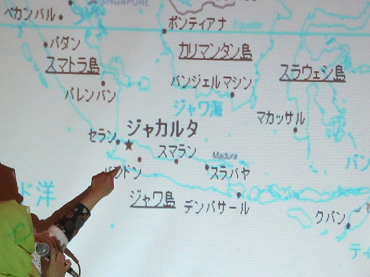 SINGAPORE
ペカンバル
ポンティアナ
Equator
パダン
カリマンタン島
スマトラ島
スラウェシ島
パレンバン
バンジェルマシン
ジャワ海
マカッサル
ジャカルタ
セラン
スマラン
Madura
バン
バンドン
スラバヤ
ド洋
ジャワ島
デンパサール
クパン
ティ